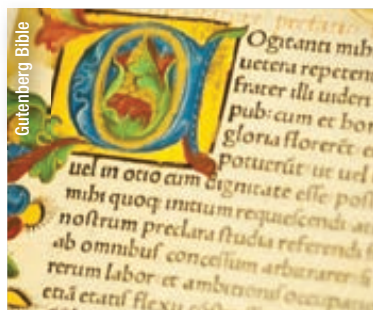 Gutenberg Bible
Ogitanti mih
uetera repeten
frater illi uideri
pub: cum et hon
gloria florerēt e
potuerūt ut uel
uel in otio cum dignitate esse poss
mihi quoq; initium requiescendi at
nostrum preclara studia referendi f
ab omnibus concessum arbitrarer si
rerum labor et ambitionis occupatio
etiā etatis flexu